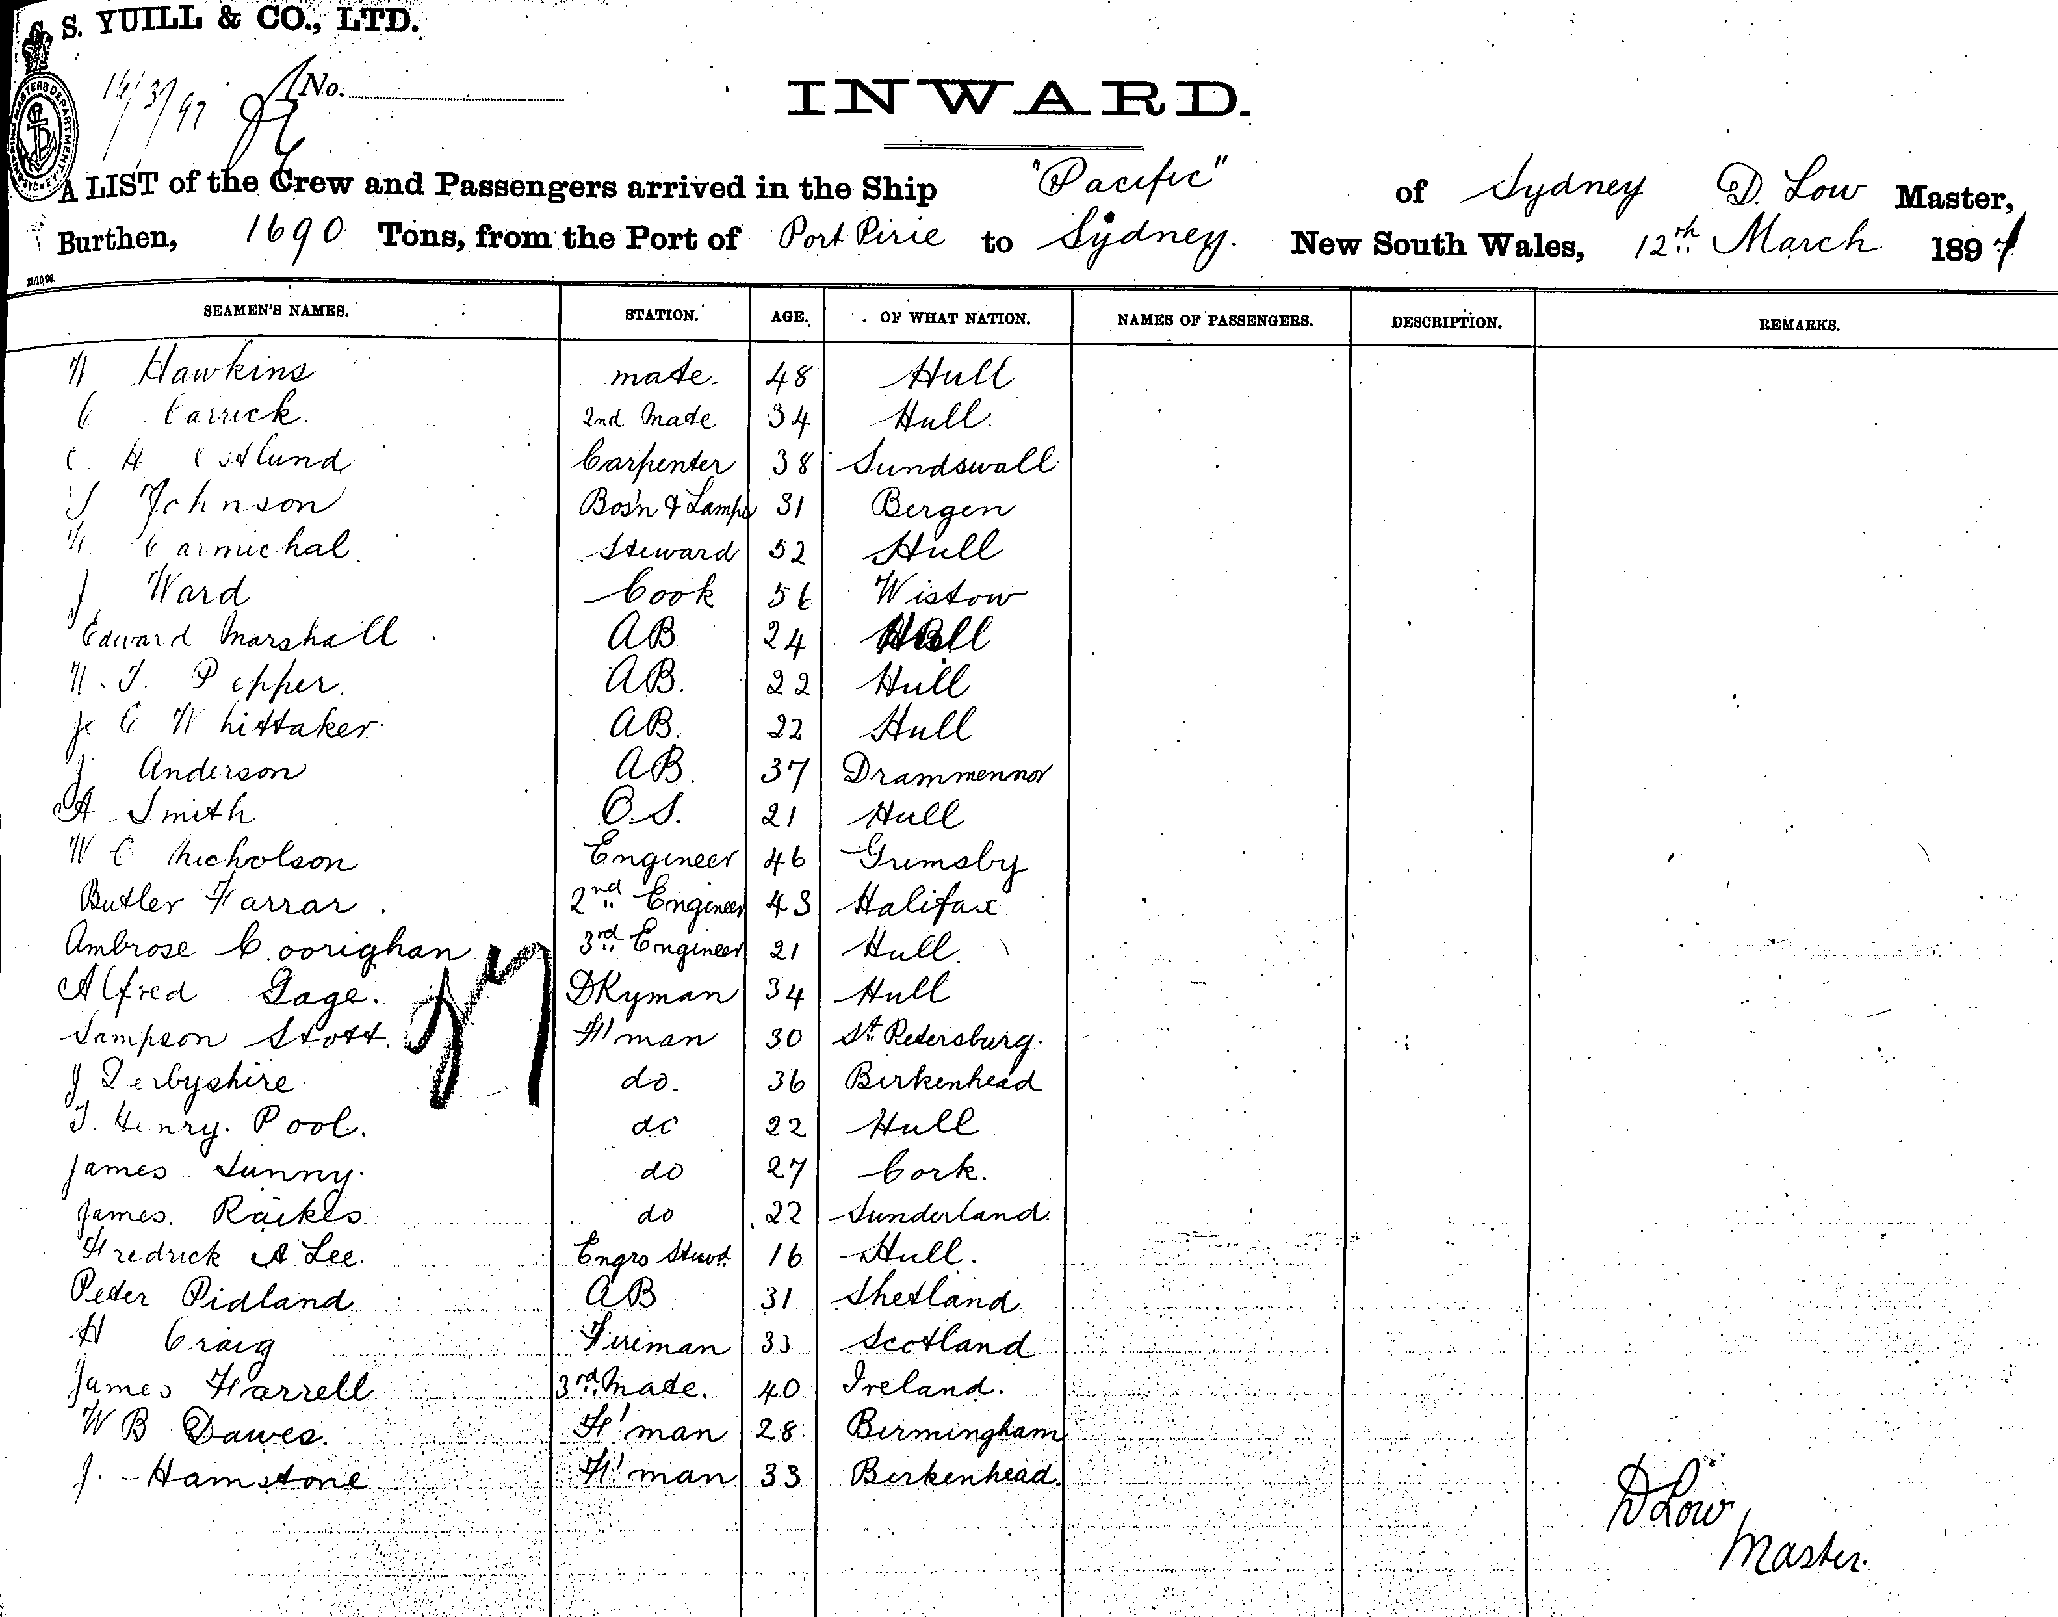 S. YUILL & CO., LTD.
No.
INWARD.
A LIST of the Crew and Passengers arrived in the Ship "Pacific" of Sydney D. Low Master,
Burthen, 1690 Tons, from the Port of Port Pirie to Sydney. New South Wales, 12th March 1897
SEAMEN'S NAMES. STATION. AGE. OF WHAT NATION. NAMES OF PASSENGERS. DESCRIPTION. REMARKS.
Hawkins mate. 48 Hull
Carrick. 2nd Mate 34 Hull.
H Carpenter 38 Sundswall
Johnson Bos'n & Lamps 31 Bergen
Carmichal. Steward 52 Hull
J Ward Cook 56 Wistow
Edward Marshall AB 24 Hull
W. T. Pepper. AB. 22 Hull
C Whittaker AB. 22 Hull
J. Anderson AB. 37 Drammen
A Smith O.S. 21 Hull
W C Nicholson Engineer 46 Grimsby
Butler Farrar. 2nd Engineer 43 Halifax
Ambrose Coorighan 3rd Engineer 21 Hull.
Alfred Gage. DKyman 34 Hull
Sampson Stott. F'man 30 St Petersburg.
J Derbyshire do. 36 Birkenhead
T. Henry. Pool. do 22 Hull
James Sunny. do 27 Cork.
James. Raikes do 22 Sunderland.
Fredrick A Lee. Engrs Stewd. 16 Hull.
Peter Pidland AB 31 Shetland
H Craig Fireman 33 Scotland
James Farrell 3rd Mate. 40 Ireland.
W B Dawes. F'man 28 Birmingham
J. Hamstone F'man 33 Berkenhead.
D Low
Master.